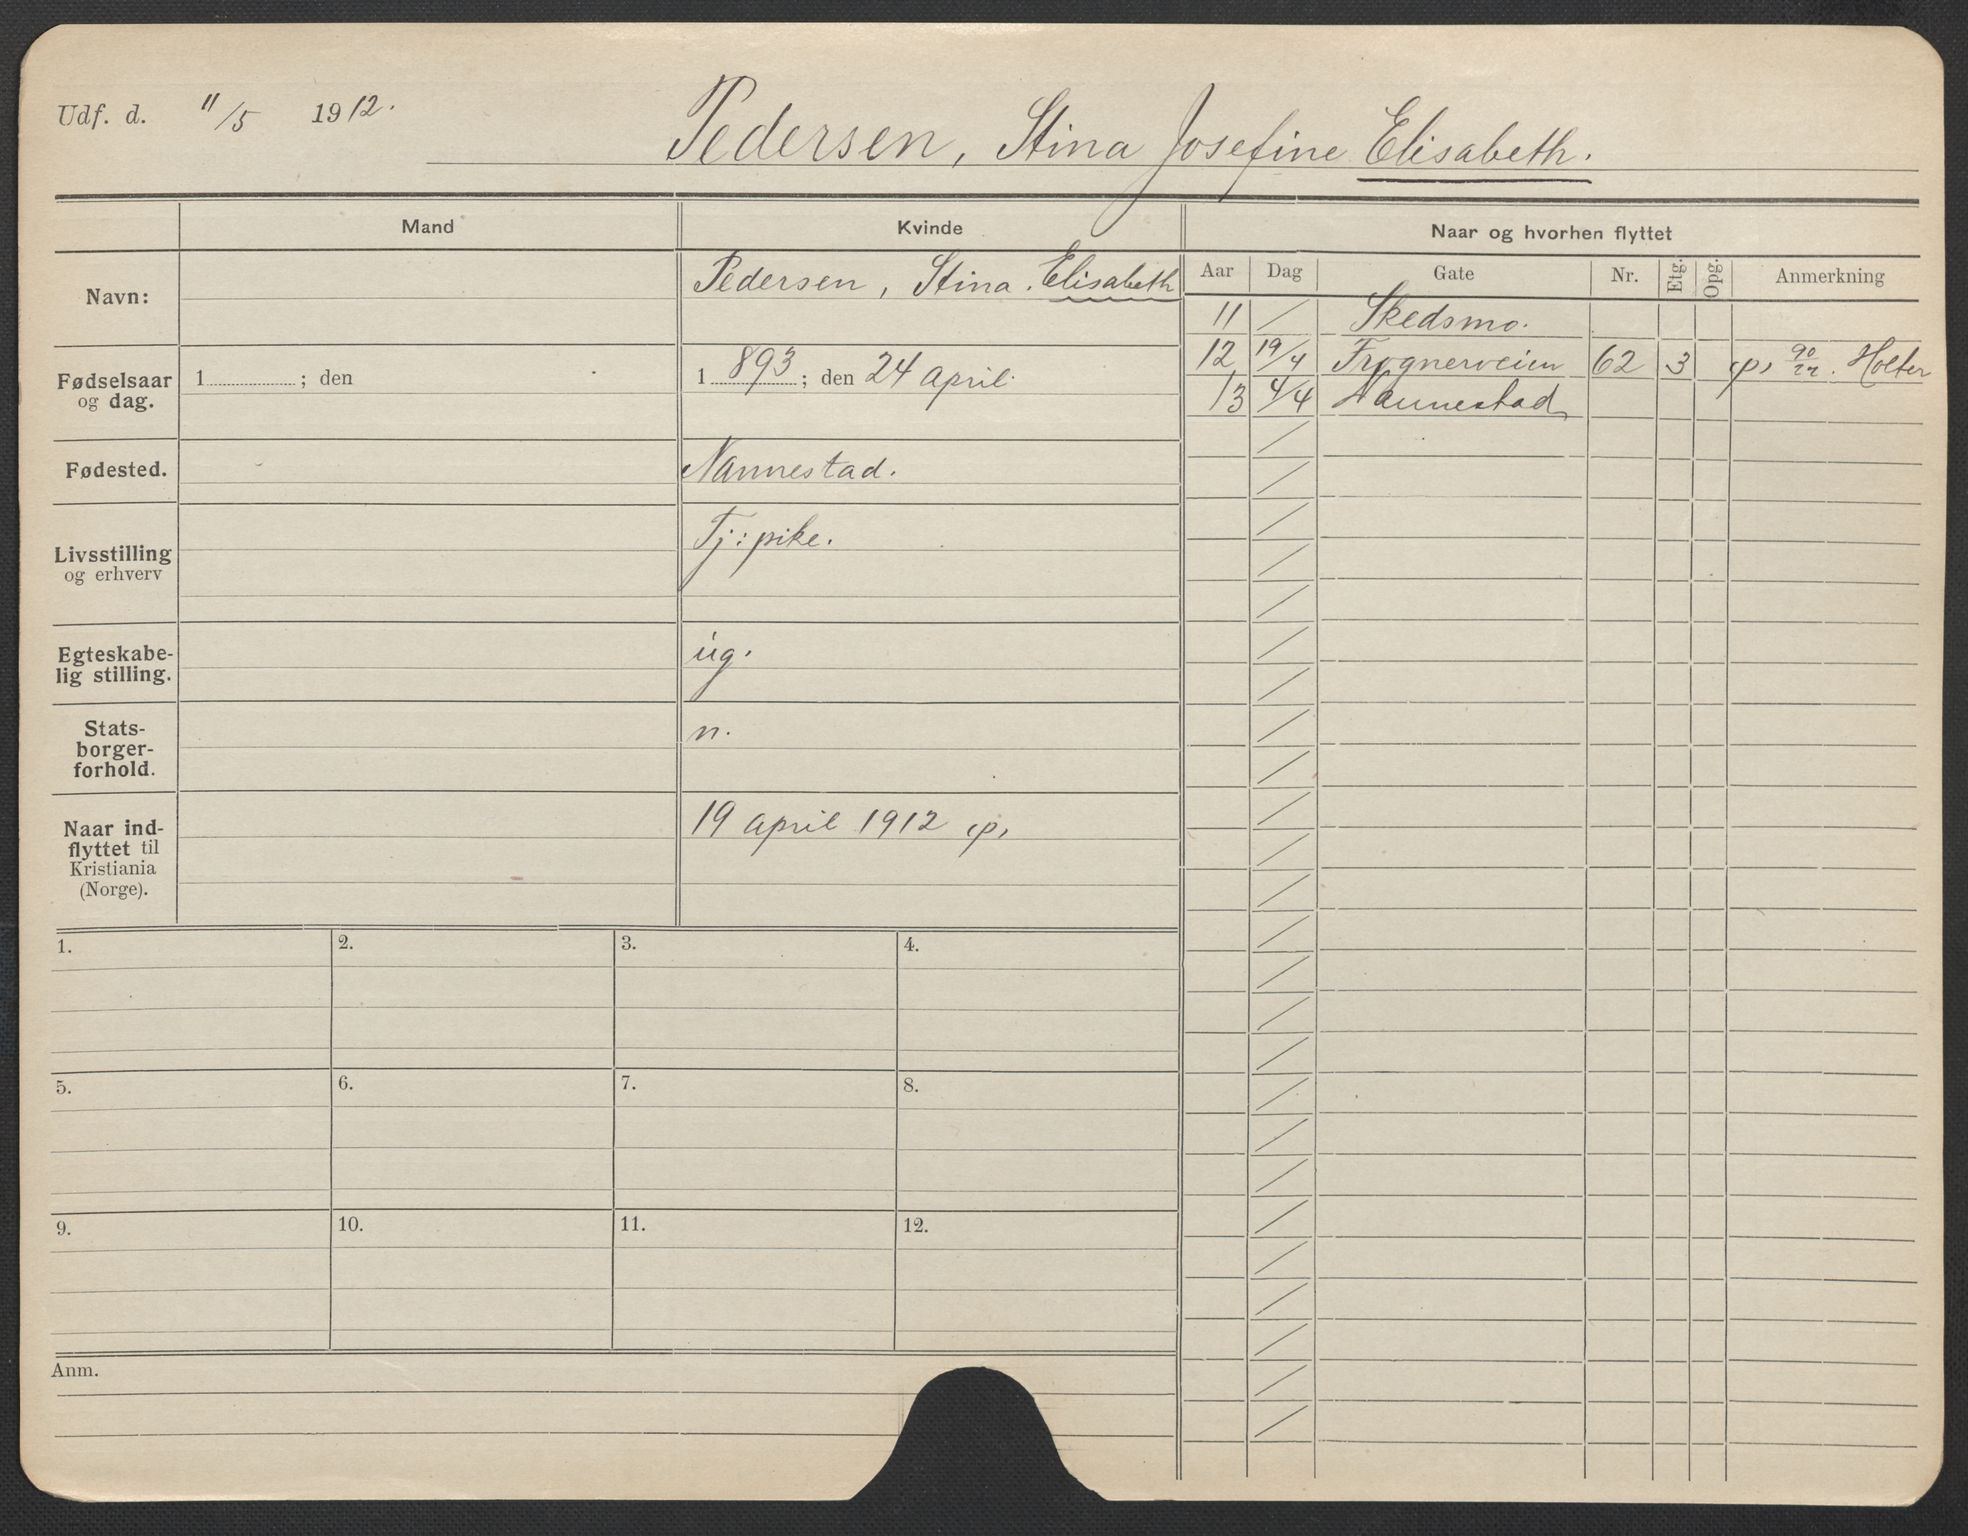 Udf. d. 11/5 1912.
Pedersen, Stina Josefine Elisabeth.
Mand
Kvinde
Naar og hvorhen flyttet
Navn:
Pedersen, Stina. Elisabeth
Aar Dag Gate Nr. Etg. Opg. Anmerkning
11 / Skedsmo.
12 19/4 Frognerveien 62 3 Holter
13 4/4 Nannestad
Fødselsaar
og dag.
1 ; den
1893; den 24 april.
Fødested.
Nannestad.
Livsstilling
og erhverv
Tj: pike.
Egteskabe-
lig stilling.
ug.
Stats-
borger-
forhold.
n.
Naar ind-
flyttet til
Kristiania
(Norge).
19 april 1912
1. 2. 3. 4.
5. 6. 7. 8.
9. 10. 11. 12.
Anm.